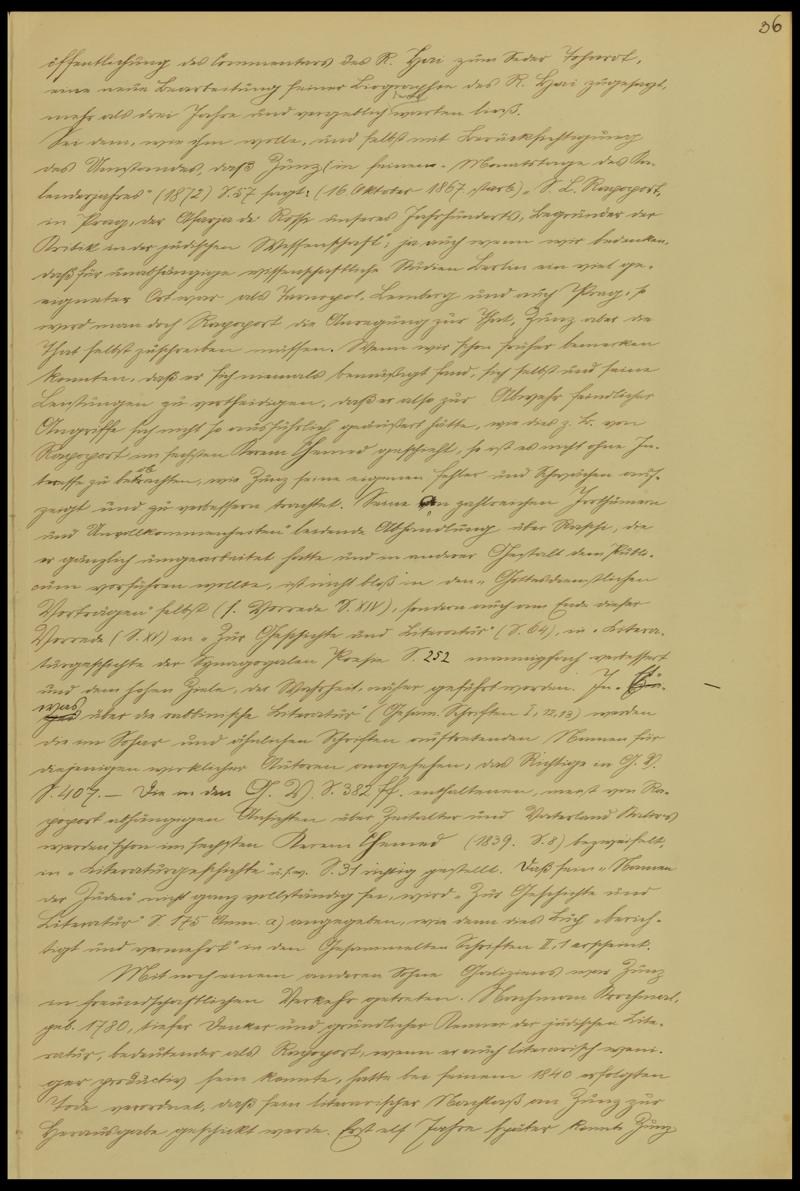 36
öffentlichung des Commentars des R. Hai zum Seder Toharot,
eine neue Bearbeitung seiner Biographie des R. Hai zugesagt,
mehr als drei Jahre und vergeblich warten ließ.
Sei dem, wie ihm wolle, und selbst mit Berücksichtigung
des Umstandes, daß Zunz (in seinem „Monatstage des Ka-
lenderjahres" (1872) S. 57 sagt: (16 Oktober 1867 starb) „S. L. Rapoport,
in Prag, der Asarja de Rossi unseres Jahrhunderts, Begründer der
Kritik in der jüdischen Wissenschaft"; ja auch wenn wir bedenken,
daß für unabhängige wissenschaftliche Studien Berlin ein viel ge-
eigneter Ort war als Tarnopol, Lemberg und auch Prag, so
wird man doch Rapoport die Anregung zur That, Zunz aber die
That selbst zuschreiben müssen. Wenn wir schon früher bemerken
konnten, daß er sich niemals bemüssigt fand, sich selbst und seine
Leistungen zu vertheidigen, daß er also zur Abwehr feindlicher
Angriffe sich nicht so ausführlich geäußert hätte, wie dies z. B. von
Rapoport im sechsten Kerem Chemed geschieht, so ist es nicht ohne In-
teresse zu beobachten, wie Zunz seine eigenen Fehler und Schwächen auf-
zeigt und zu verbessern trachtet. Seine an zahlreichen Irrthümern
und Unvollkommenheiten leidende Abhandlung über Raschi, die
er gänzlich umgearbeitet hatte und in anderer Gestalt dem Publi-
cum vorführen wollte, ist nicht bloß in den „Gottesdienstlichen
Vorträgen" selbst (s. Vorrede S. XIV), sondern auch am Ende dieser
Vorrede (S. XV) in „Zur Geschichte und Literatur" (S. 64), in „Litera-
turgeschichte der Synagogalen Poesie S. 252 mannigfach verbessert
und dem hohen Ziele, der Wahrheit, näher geführt worden. In „Et-
was über die rabbinische Literatur" (Gesam. Schriften I, 12, 13) werden
die im Sohar und ähnlichen Schriften auftretenden Namen für
diejenigen wirklicher Autoren angesehen, das Richtige in G. V.
S. 407. — Die in den G. V. S. 382 ff. enthaltenen, meist von Ra-
poport abhängigen Ansichten über Zeitalter und Vaterland Kalirs
werden schon im sechsten Kerem Chemed (1839. S. 8) bezweifelt,
in „Literaturgeschichte" u.s.w. S. 31 richtig gestellt. Daß sein „Namen
der Juden" nicht ganz vollständig sei, wird „Zur Geschichte und
Literatur" S. 175 Anm. a) angegeben, wie denn dies Buch „berich-
tigt und vermehrt" in den Gesammelten Schriften II, 1 erscheint.
Mit noch einem anderen Sohne Galiziens war Zunz
in freundschaftlichen Verkehr getreten. Nachman Krochmal,
geb. 1780, tiefer Denker und gründlicher Kenner der jüdischen Lite-
ratur, bedeutender als Rapoport, wenn er auch literarisch weni-
ger productiv sein konnte, hatte bei seinem 1840 erfolgten
Tode verordnet, daß sein literarischer Nachlaß an Zunz zur
Herausgabe geschickt werde. Erst elf Jahre später konnte Zunz